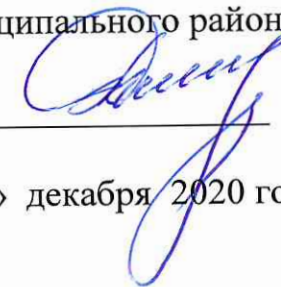 ципального район
» декабря 2020 го